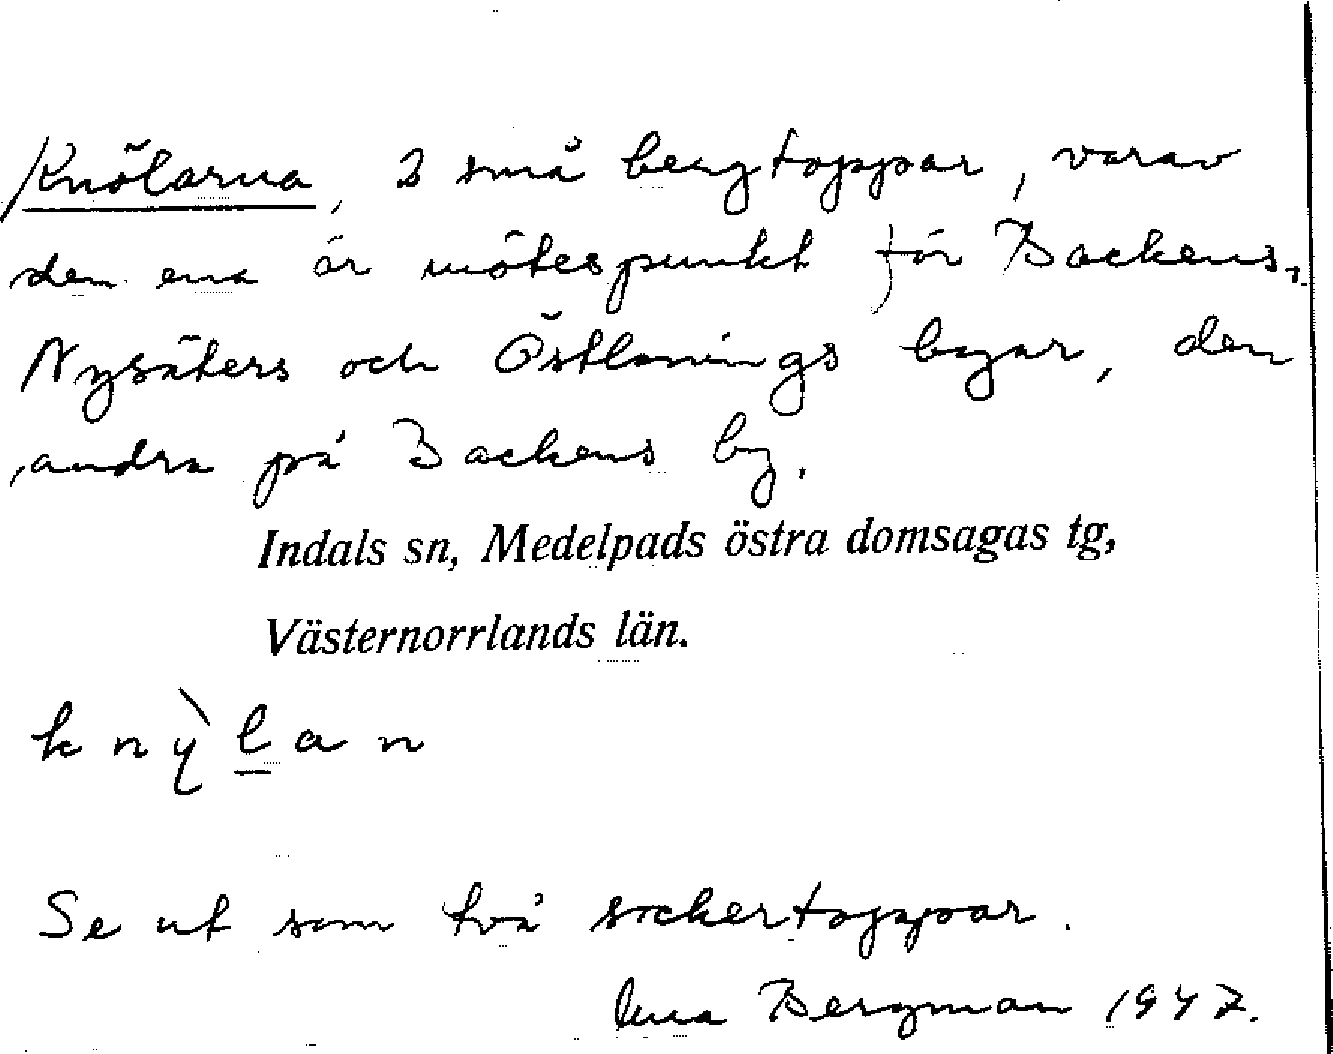 Knölarna, 2 små bergtoppar, varav
den ena är mötespunkt för Backens,
Nysäters och Östlonings byar, den
andra på Backens by.
Indals sn, Medelpads östra domsagas tg,
Västernorrlands län.
knỳlan
Se ut som två sockertoppar.
Bergman 1947.